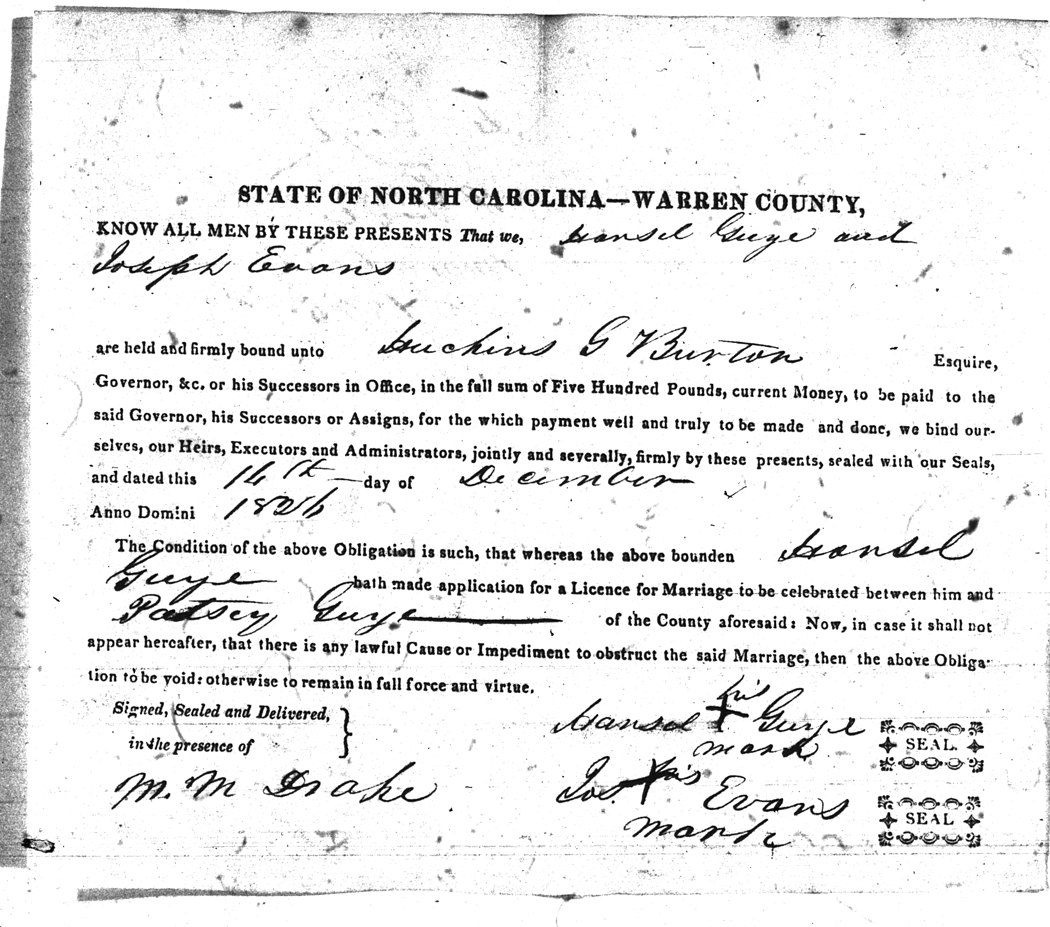 STATE OF NORTH CAROLINA—WARREN COUNTY,
KNOW ALL MEN BY THESE PRESENTS That we, Hansel Guye and
Joseph Evans
are held and firmly bound unto Huchins G Burton Esquire,
Governor, &c. or his Successors in Office, in the full sum of Five Hundred Pounds, current Money, to be paid to the
said Governor, his Successors or Assigns, for the which payment well and truly to be made and done, we bind our-
selves, our Heirs, Executors and Administrators, jointly and severally, firmly by these presents, sealed with our Seals,
and dated this 14th day of December
Anno Domini 1826
The Condition of the above Obligation is such, that whereas the above bounden Hansel
Guye hath made application for a Licence for Marriage to be celebrated between him and
Patsey Guye of the County aforesaid: Now, in case it shall not
appear hereafter, that there is any lawful Cause or Impediment to obstruct the said Marriage, then the above Obliga-
tion to be void: otherwise to remain in full force and virtue.
Signed, Sealed and Delivered,
in the presence of
M. M Drake
his
Hansel X Guye SEAL.
mark
his
Jos. X Evans SEAL
mark